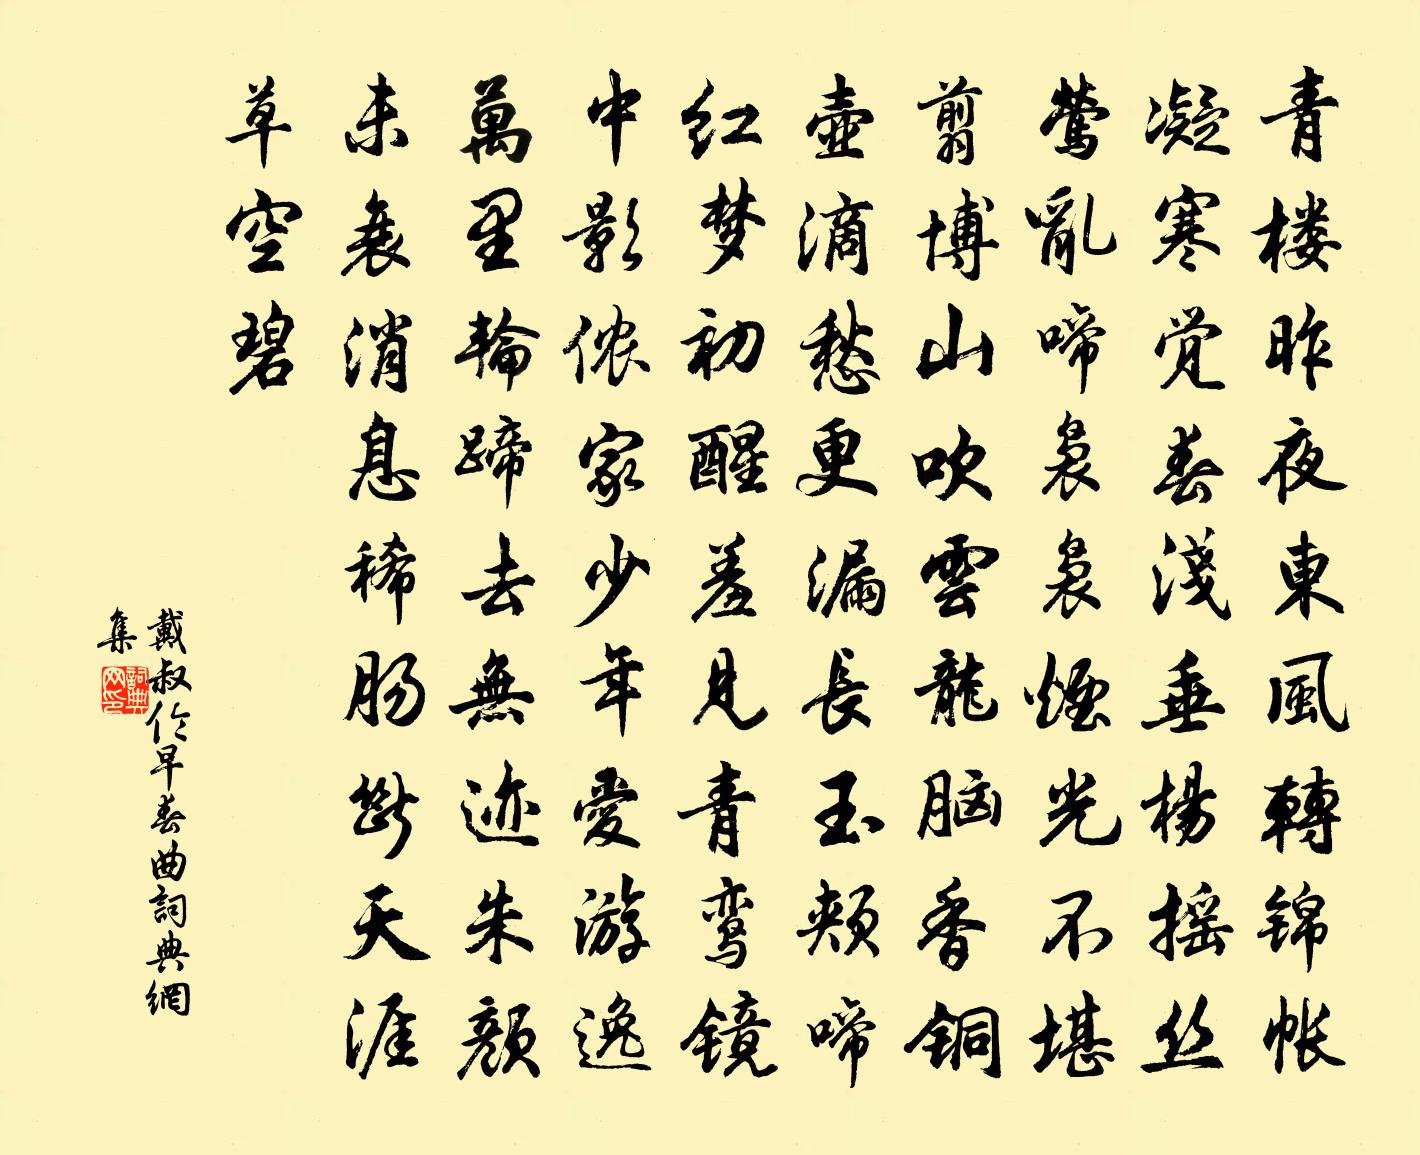 青楼昨夜東風轉錦帐
凝寒觉春淺垂楊摇丝
莺亂啼袅袅煙光不堪
剪博山吹雲龍脑香铜
壶滴愁更漏長玉颊啼
红梦初醒羞見青鸾镜
中影侬家少年愛游逸
萬里輪蹄去無迹朱颜
未衰消息稀肠断天涯
草空碧
戴叔伦早春曲詞典網
集
詞典
网印